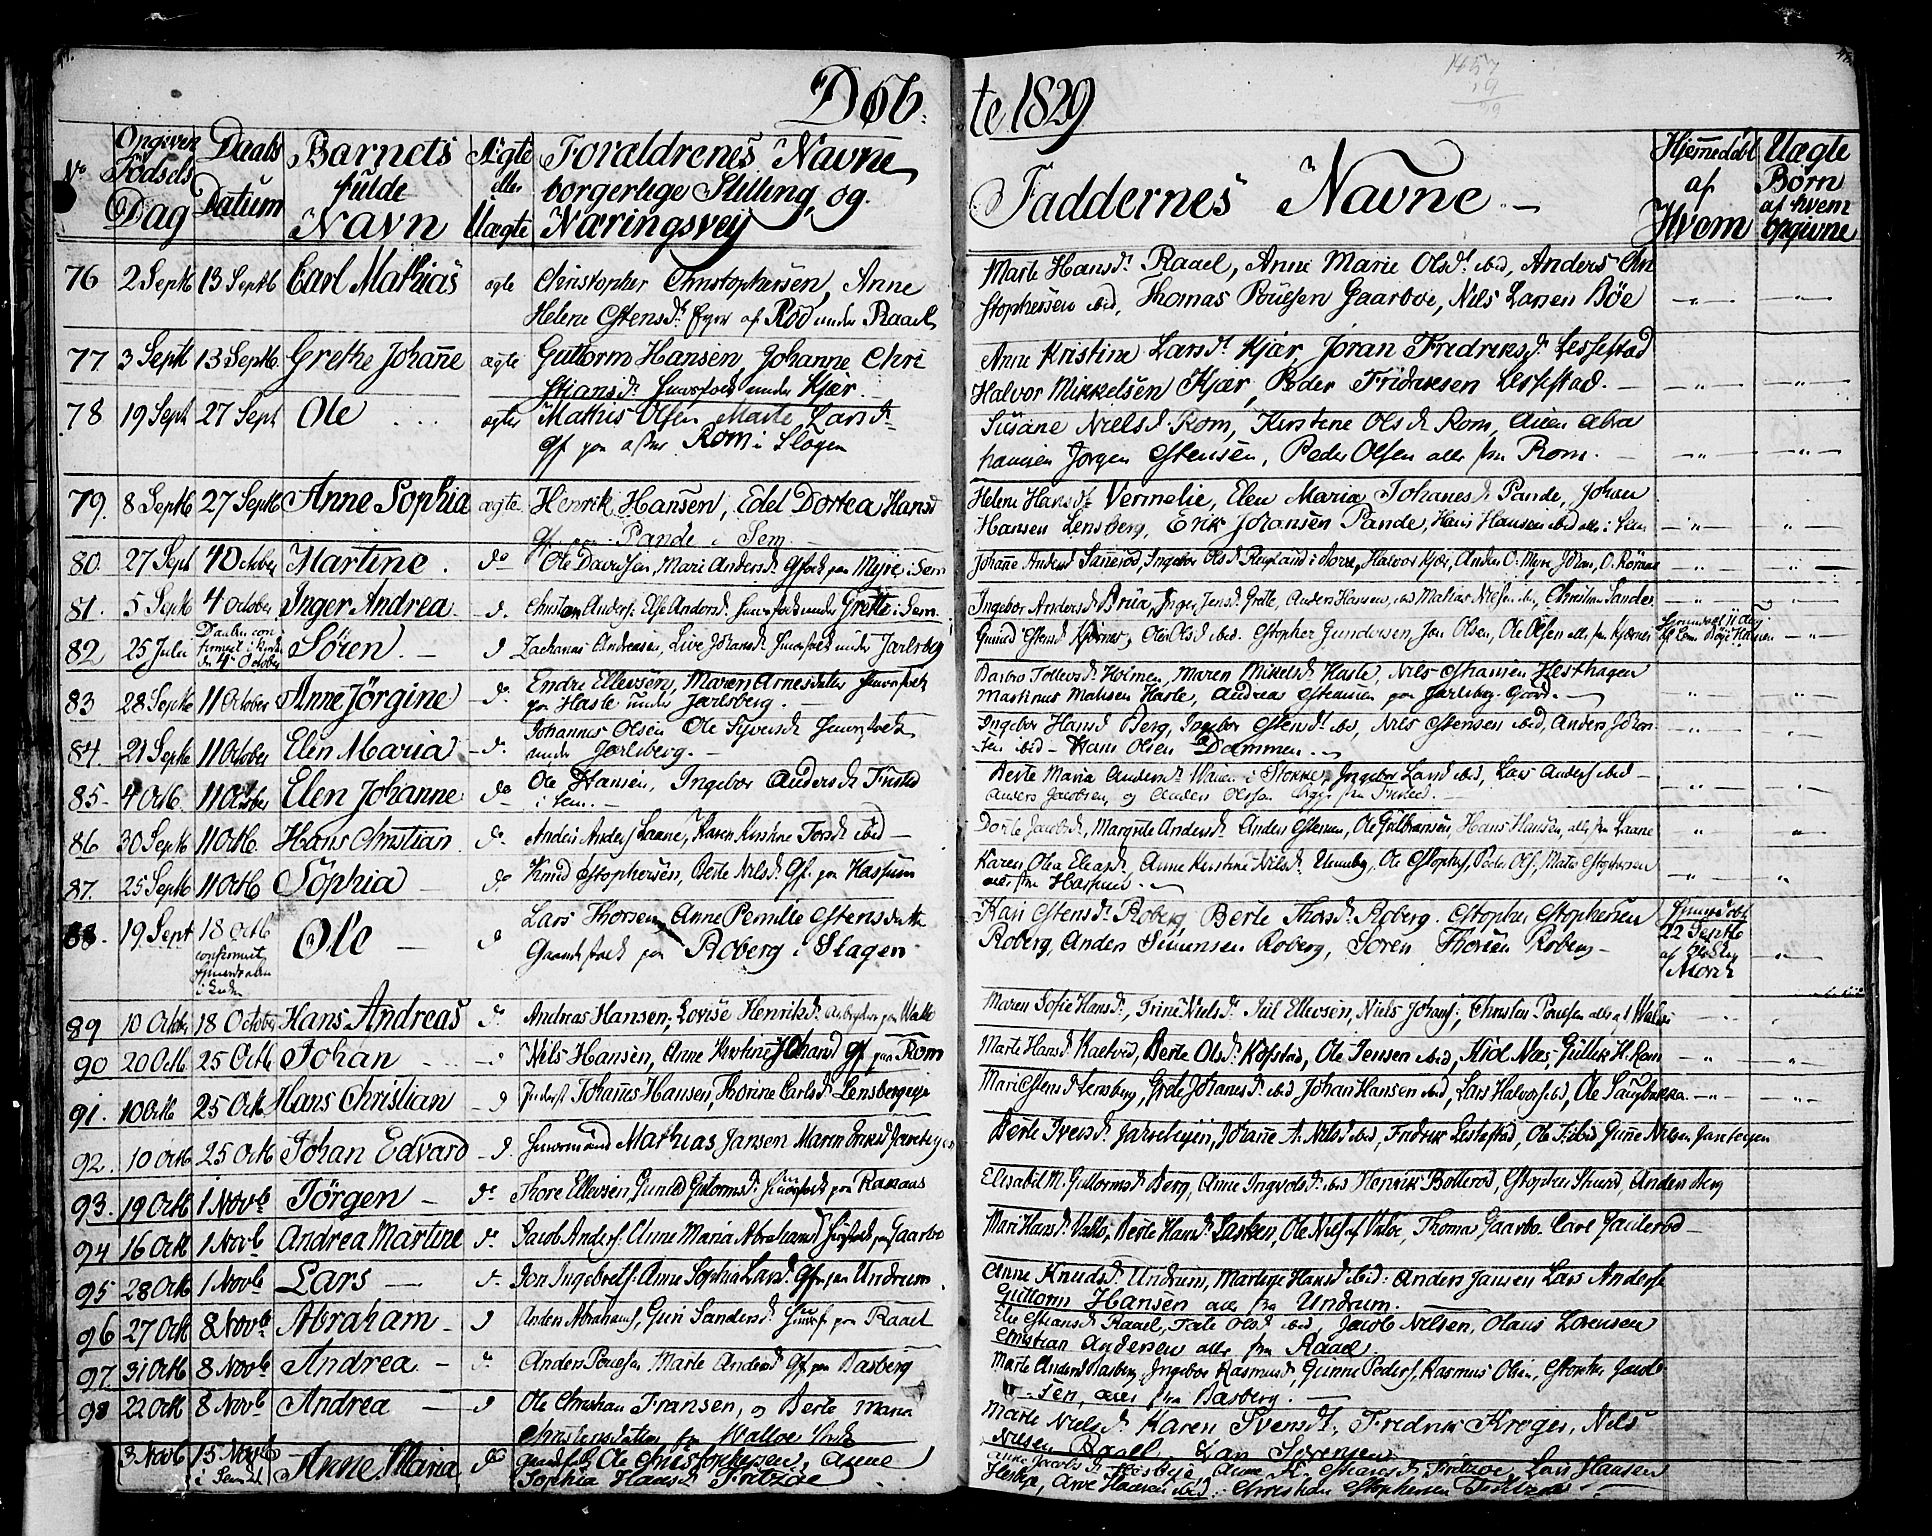 Døb-
te 1829
No
Opgiven Födsels Dag
Daabs Datum
Barnets fulde Navn
Ægte eller Uægte
Forældrenes Navne borgerlige Stilling, og Næringsvej
Faddernes Navne
Hjemedøbt af Hvem
Uægte Børn af hvem opgivne
76 2 Septb 13 Septb Carl Mathias ægte Christopher Christophersen, Anne
Helene Estensd. under Raael
Marte Hansd. Raael, Anne Marie Olsd. ibid, Anders Chri
stophersen ibid, Thomas Pouelsen Gaarboe, Nils Larsen Böe
77 3 Septb 13 Septb. Grethe Johanne ægte Guttorm Hansen, Johanne Chri
stiansd. huusfolk under Kjær
Anne Kristine Larsd. Kjær, Joran Fredriksd. Lessestad
Halvor Mikkelsen Kjær, Peder Fridriksen Lessestad.
78 19 Sept 27 Sept Ole ægte Mathis Olsen Marte Larsd.
Rom i Slagen
Susane Nielsd. Rom, Kirstene Olsd. Rom, Aven Abra
hamsen Jorgen Estensen, Peder Olsen alle fra Rom.
79. 8 Septb 27 Septb Anne Sophia ægte Henrik Hansen, Edel Dortea Hansd
Gf. paa Pande i Sem
Helene Hansd. Vermelie, Elen Maria Johanesd. Pande, Johan
Hansen Lensberg, Erik Johansen Pande, Hans Hansen ibid alle i Sem
80. 27 Sept 4 October Martine. do Ole Davidsen, Mari Andersd. Gfolk paa Myre i Sem
Halvor Kjær, Anders O. Myre
81. 5 Septb 4 October Inger Andrea Christian Anders. Else Andersd. huusfolk under Grette i Sem
Ingebor Andersd. Brua, Inger Jensd. Grette, Anders Hansen, ibid Mathias Nilsen ibid, Christian Sander
82 25 Julii Daaben con
firmeret i Kirk
den 4 October Sören. Zacharias Andreasen, Live Johansd. huusfolk under Jarlsberg
Gunild Estensd. Kjernæs, Olea Olsd. ibid. Estopher Gundersen, Jon Olsen, Ole Olsen alle fra Kjernæs
83 28 Septb 11 October Anne Jörgine do. Endre Ellevsen, Maren Arnesdatter huusfolk
paa Hasle under Jarlsberg.
Barbro Tollevsd. Holmen, Maren Mikelsd. Hasle, Nils Hesthagen
Mathisen Hasle, Andreas paa Jarlsberg Gaard.
84. 21 Septb 11 October Elen Maria Johannes Olsen Ole Syversd. huusfolk
under Jarlsberg.
Ingebor Hansd. Berg, Ingebor Estensd. ibid, Nils Estensen ibid, Anders Johan
sen ibid - Hans Olsen Dammen.
85 4 Octb. 11 October Elen Johanne do Ole Hansen, Ingebor Andersd. Trested
i Sem.
Berte Maria Andersd. i Stokke, Ingebor Larsd. ibid, Lars Anders. ibid
Anders Jacobsen, og Anders Olsen begge fra Trested.
86 30 Septb 11 Octb. Hans Christian do. Anders Anders. Laane, Karen Kirstine Torsd. ibid
Dorte Jacobsd., Margrete Andersd. Anders Estensen, Ole Gulbransen, Hans Hansen, alle fra Laane
87. 25 Septb 11 Octb Sophia do Knud Estophersen, Berte Nilsd. Gf. paa Hassum
Karen Olia Eliasd., Anne Kirstine Nilsd. Unneberg, Ole Estophs., Peder Ols., Mates Estophersen
alle fra Hassum.
88. 19 Sept 18 Octb
confirmeret
hjemedaaben
i Kirken Ole Lars Thorsen, Anne Pernille Estensdatter
Gaardfolk paa Roberg i Slagen
Kari Estensd. Roberg, Berte Thorsd. Roberg. Estopher Estophersen
Roberg, Anders Simensen Roberg, Soren Thorsen Roberg
Hjemedøbt
22 Septb
af Klokker
Monrk
89 10 Octber 18 October Hans Andreas do. Andreas Hansen, Lovise Henriksd. Arbeyder paa Vallö
Maren Sofie Hansd., Trine Nielsd. Juil Ellevsen, Niels Johans., Christen Pouelsen alle af Vallöe
90 20 Octb 25 Octb Johan Nils Hansen, Anne Kirstine Johansd Gf. paa Rom
Marte Hansd. Raelvid, Berte Olsd. Kofstad, Ole Jensen ibid, Kiöl Næs, Gullik H. Rom
91. 10 Octb 25 Octb Hans Christian Inderst Johanes Hansen, Thorine Carlsd. Lensbergeje
Mari Estensd. Lensberg, Grete Johanesd. ibid Johan Hansen ibid, Lars Halvors. ibid, Ole Saugbakka.
92. 10 Octb 25 Octb Johan Edvard Huusmand Mathias Jansen Maren Eriksd Jareteyen
Berte Iversd. Jahreteyen, Johane A. Nilsd ibid, Fredrik Lessestad, Ole ibid Gunne Nilsen Jareteyen
93. 19 Octb 1 Novb Jörgen do Thore Ellevsen, Gunild Guttormsd. Huusfolk paa Ramnæs
Elisabet M. Guttormsd. Berg, Anne Ingvoldsd. ibid Henrik Bollerod, Estopher Anders Berg
94 16 Octb 1 Novb Andrea Martine do Jacob Anders. Anne Maria Abrahamsd. Huusfolk paa Gaarbo
Mari Hansd. Vallö, Berte Hansd. Lasken, Ole Nils. af Valöe, Thomas Gaarbo. Carl Gauterod
95 28 Octb 1 Novb Lars Jon Ingebrets. Anne Sophia Larsd. Gf. paa Undrum
Anne Knudsd. Undrum, Marthe Hansd. ibid: Anders Jansen Lars Anders.
Guttorm Hansen alle fra Undrum.
96 27 Octb 8 Novb. Abraham Anders Abrahams, Guri Sandersd. Huusf. paa Raael
Else Estiansd. Raael, Tale Olsd. ibid, Jacob Nilsen, Olaus Lorensen
Christian Andersen alle fra Raael.
97. 31 Octb 8 Novb Andrea. do Anders Pouelsen Marte Andersd Gf. paa Basberg
Marte Andersd. Basberg, Ingebor Rasmusd., Gunne Peders., Rasmus Olsen, Estopher Jacob
sen, alle fra Basberg.
98 22 Octb 8 Novb. Andrea Ole Christian Fransen, og Berte Maria
Christensdatter fra Valloe
Marte Nielsd. Karen Svensd., Fredrik Kroger, Nils
Nilsen Raael, Lars Sörensen
3 Novb 15 Novb
i Sem Anne Maria do Gaardf. Ole Christophersen, Anne
Sophia Hansd. Fritzöe
Hesbye, Anne K. Estiansd. Fritzoe, Lars Hansen
Hesbye, Arve Hansen ibid. Christian Estophersen Fritzoe